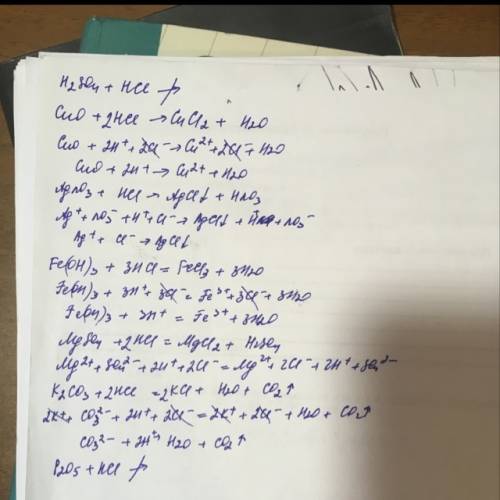 H₂SO₄ + HCl ↛
CuO + 2HCl → CuCl₂ + H₂O
CuO + 2H⁺ + 2Cl⁻ → Cu²⁺ + 2Cl⁻ + H₂O
CuO + 2H⁺ → Cu²⁺ + H₂O
AgNO₃ + HCl → AgCl↓ + HNO₃
Ag⁺ + NO₃⁻ + H⁺ + Cl⁻ → AgCl↓ + H⁺ + NO₃⁻
Ag⁺ + Cl⁻ → AgCl↓
Fe(OH)₃ + 3HCl = FeCl₃ + 3H₂O
Fe(OH)₃ + 3H⁺ + 3Cl⁻ = Fe³⁺ + 3Cl⁻ + 3H₂O
Fe(OH)₃ + 3H⁺ = Fe³⁺ + 3H₂O
MgSO₄ + 2HCl = MgCl₂ + H₂SO₄
Mg²⁺ + SO₄²⁻ + 2H⁺ + 2Cl⁻ = Mg²⁺ + 2Cl⁻ + 2H⁺ + SO₄²⁻
K₂CO₃ + 2HCl = 2KCl + H₂O + CO₂↑
2K⁺ + CO₃²⁻ + 2H⁺ + 2Cl⁻ = 2K⁺ + 2Cl⁻ + H₂O + CO₂↑
CO₃²⁻ + 2H⁺ = H₂O + CO₂↑
P₂O₅ + HCl ↛